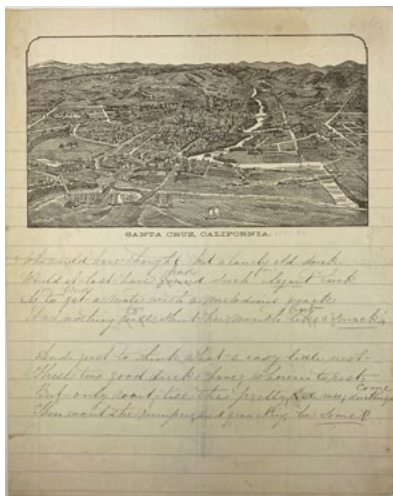 SANTA CRUZ, CALIFORNIA.
Who would have thought that a lonely old duck
Would at last have had such elegant luck
As to get a mate with a melodious quack
And nothing will shut her mouth but a smack.
And just to think what a easy little nest
These two good ducks have, wherein to rest
But only wait, till the pretty wee ducklings come
Then won't the and quacking be some!!